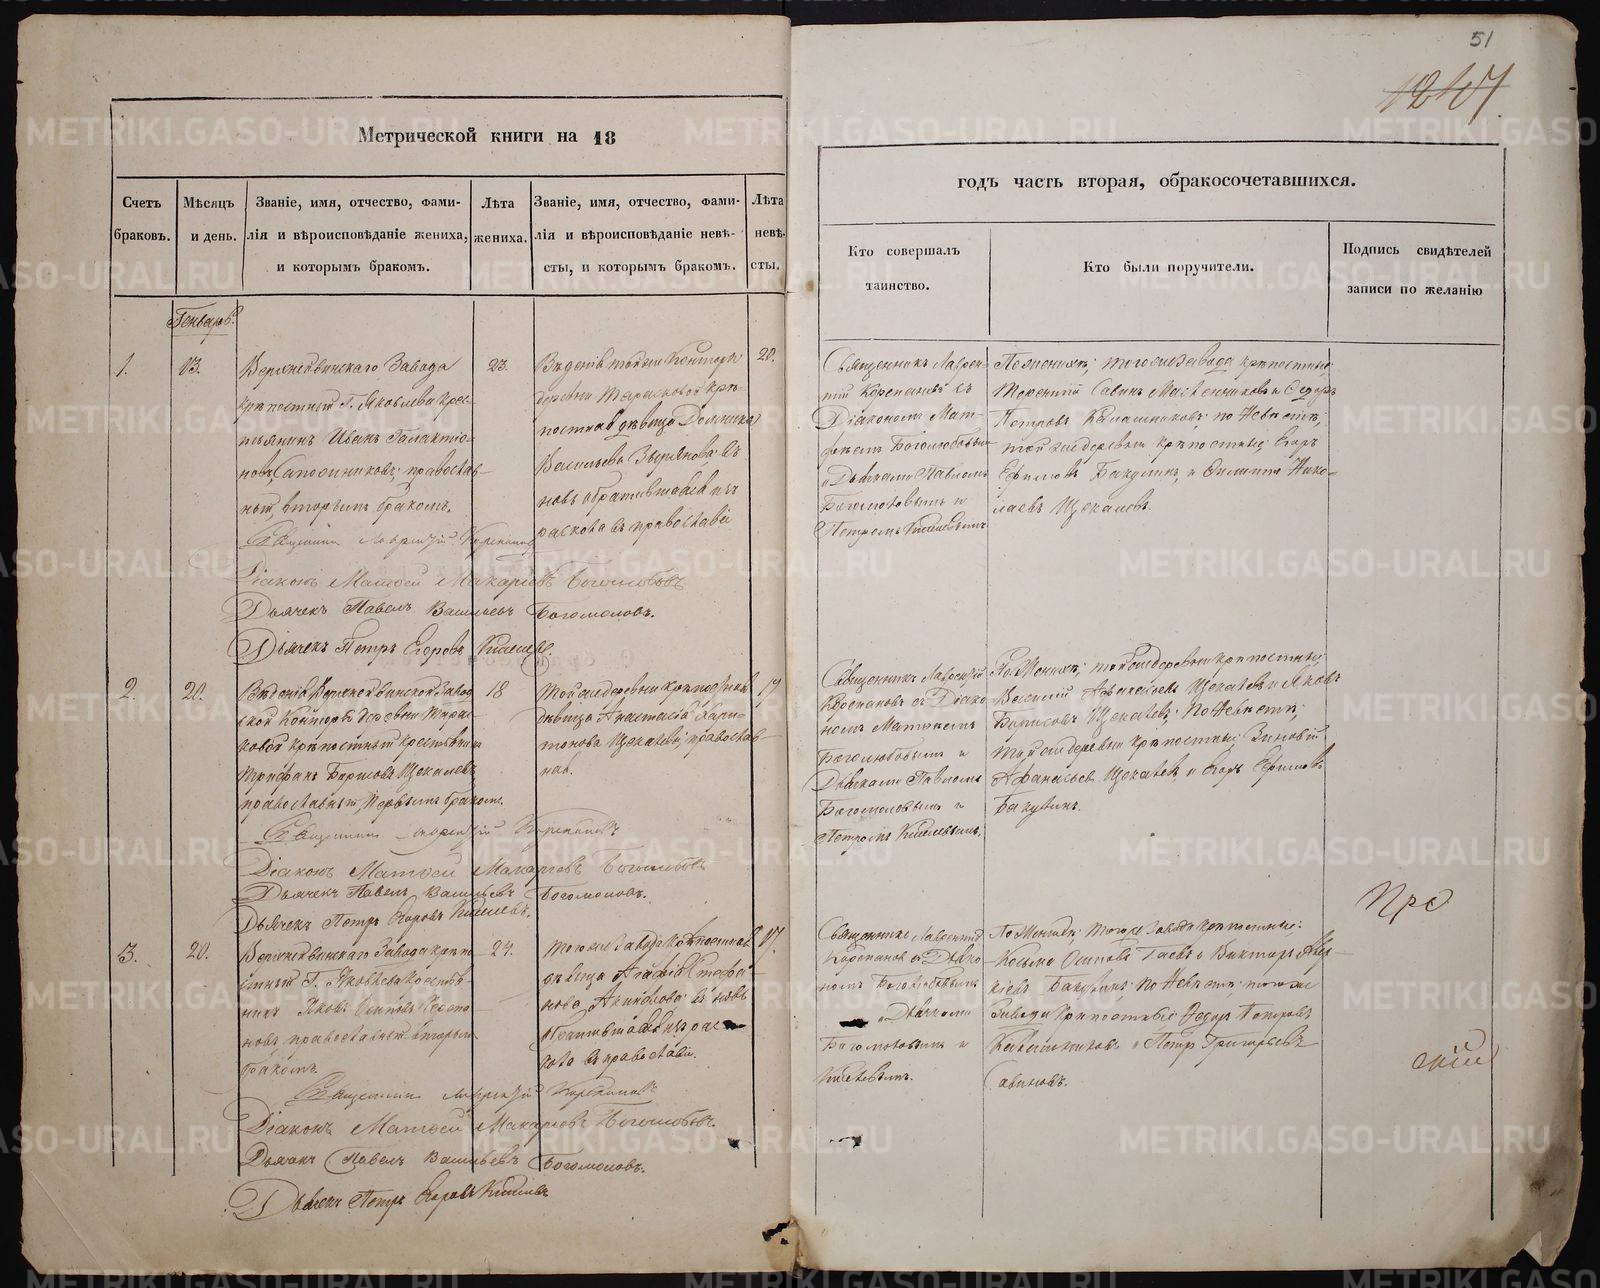 51
1247
Метрической книги на 18
годъ часть вторая, обракосочетавшихся.
Счетъ браковъ.
Мѣсяцъ и день.
Званіе, имя, отчество, фами-
лія и вѣроисповѣданіе жениха,
и которымъ бракомъ.
Лѣта жениха.
Званіе, имя, отчество, фами-
лія и вѣроисповѣданіе невѣ-
сты, и которымъ бракомъ.
Лѣта невѣ-
сты.
Кто совершалъ
таинство.
Кто были поручители.
Подпись свидѣтелей
записи по желанію
Генварь.
1.
03.
Завода
крѣпостный Г. Яковлева крес-
тьянинъ Иванъ Галактіо-
новъ Сапожниковъ; православ-
ный, вторымъ бракомъ.
23.
деревни Тарасковой крѣ-
постная дѣвица
Васильева
новь обратившаяся изъ
раскола въ православіе
20.
Священникъ Лаврен-
тій Корепановъ съ
Діакономъ Мат-
фѣемъ Боголюбовымъ
и Дьячками Павломъ
Богомоловымъ и
Петромъ
По женихѣ; тогоже Завода крѣпостные
Терентій Савинъ и Ѳедоръ
Петровъ Калашниковъ; по невѣстѣ,
тойже деревни крѣпостные; Егоръ
Ефимовъ Бакулинъ, и Филиппъ Нико-
лаевъ Щекалевъ.
Священникъ Лаврентій Корепановъ
Діаконъ Матѳей Макаровъ Боголюбовъ
Дьячекъ Павелъ Васильевъ Богомоловъ.
Дьячекъ Петръ Егоровъ
2.
20.
деревни Тарас-
ковой крѣпостный крестьянинъ
Борисовъ Щекалевъ
православный, первымъ бракомъ.
18
Тойже деревни крѣпостная
дѣвица Анастасія Хари-
тонова Щекалева; православ-
ная.
17
Священникъ Лаврентій
Корепановъ съ Діако-
номъ Матѳеемъ
Боголюбовымъ и
Дьячками Павломъ
Богомоловымъ и
Петромъ
По женихѣ; тойже деревни крѣпостные
Василій Щекалевъ и Яковъ
Борисовъ Щекалевъ; по невѣстѣ;
тойже деревни крѣпостные; Зиновій
Афанасьевъ Щекалевъ, и Егоръ Ефимовъ
Бакулинъ.
Священникъ Лаврентій Корепановъ
Діаконъ Матѳей Макаровъ Боголюбовъ
Дьячекъ Павелъ Васильевъ Богомоловъ.
Дьячекъ Петръ Егоровъ
3.
20.
Завода крѣпо-
стный Г. Яковлева крестья-
нинъ Яковъ Осиповъ
новъ православный вторымъ
бракомъ
24.
тогоже Завода крѣпостная
дѣвица Агафія Стефа-
нова вновь
обратившаяся изъ рас-
кола въ православіе.
17.
Священникъ Лаврентій
Корепановъ съ Діако-
номъ Боголюбовымъ
и Дьячками
Богомоловымъ и
По женихѣ; тогоже Завода крѣпостные:
Козьма Осиповъ и Викторъ
Бакулинъ; по невѣстѣ; тогоже
Завода крѣпостные Ѳедоръ Петровъ
Калашниковъ и Петръ Григорьевъ
Савиновъ.
Священникъ Лаврентій Корепановъ
Діаконъ Матѳей Макаровъ Боголюбовъ.
Дьячекъ Павелъ Васильевъ Богомоловъ.
Дьячекъ Петръ Егоровъ
METRIKI.GASO-URAL.RU